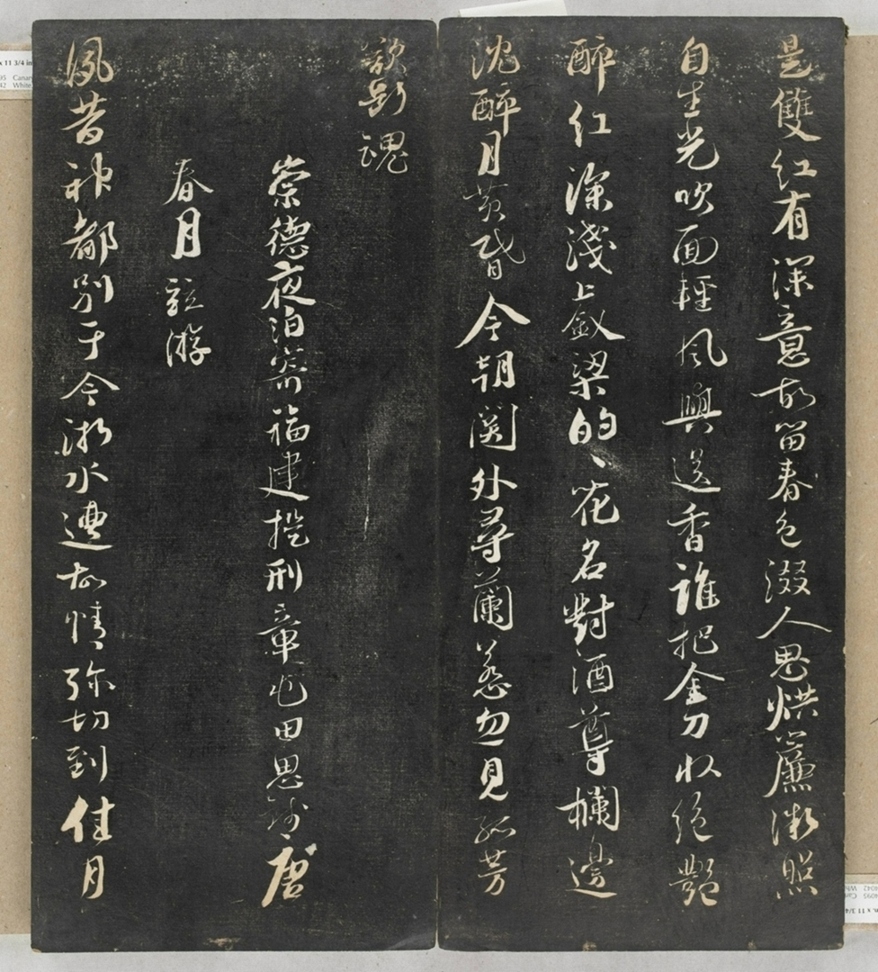 是雙紅有深意故留春色綴人思烘簾微照
自生光吹面輕風與送香誰把金刀收絕艷
醉紅深淺上釵梁的、花名對酒尊欄邊
沈醉月黃昏今朝関外尋蘭蕙忽見孤芳
欲斷魂
崇德夜泊寄福建提刑章屯田思錢唐
春月並游
夙昔神都別于今淛水遭故情弥切到佳月
x 11 3/4 in